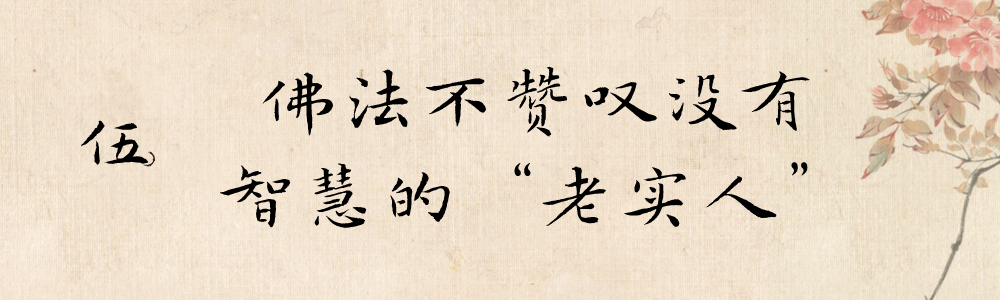 伍
佛法不赞叹没有
智慧的“老实人”